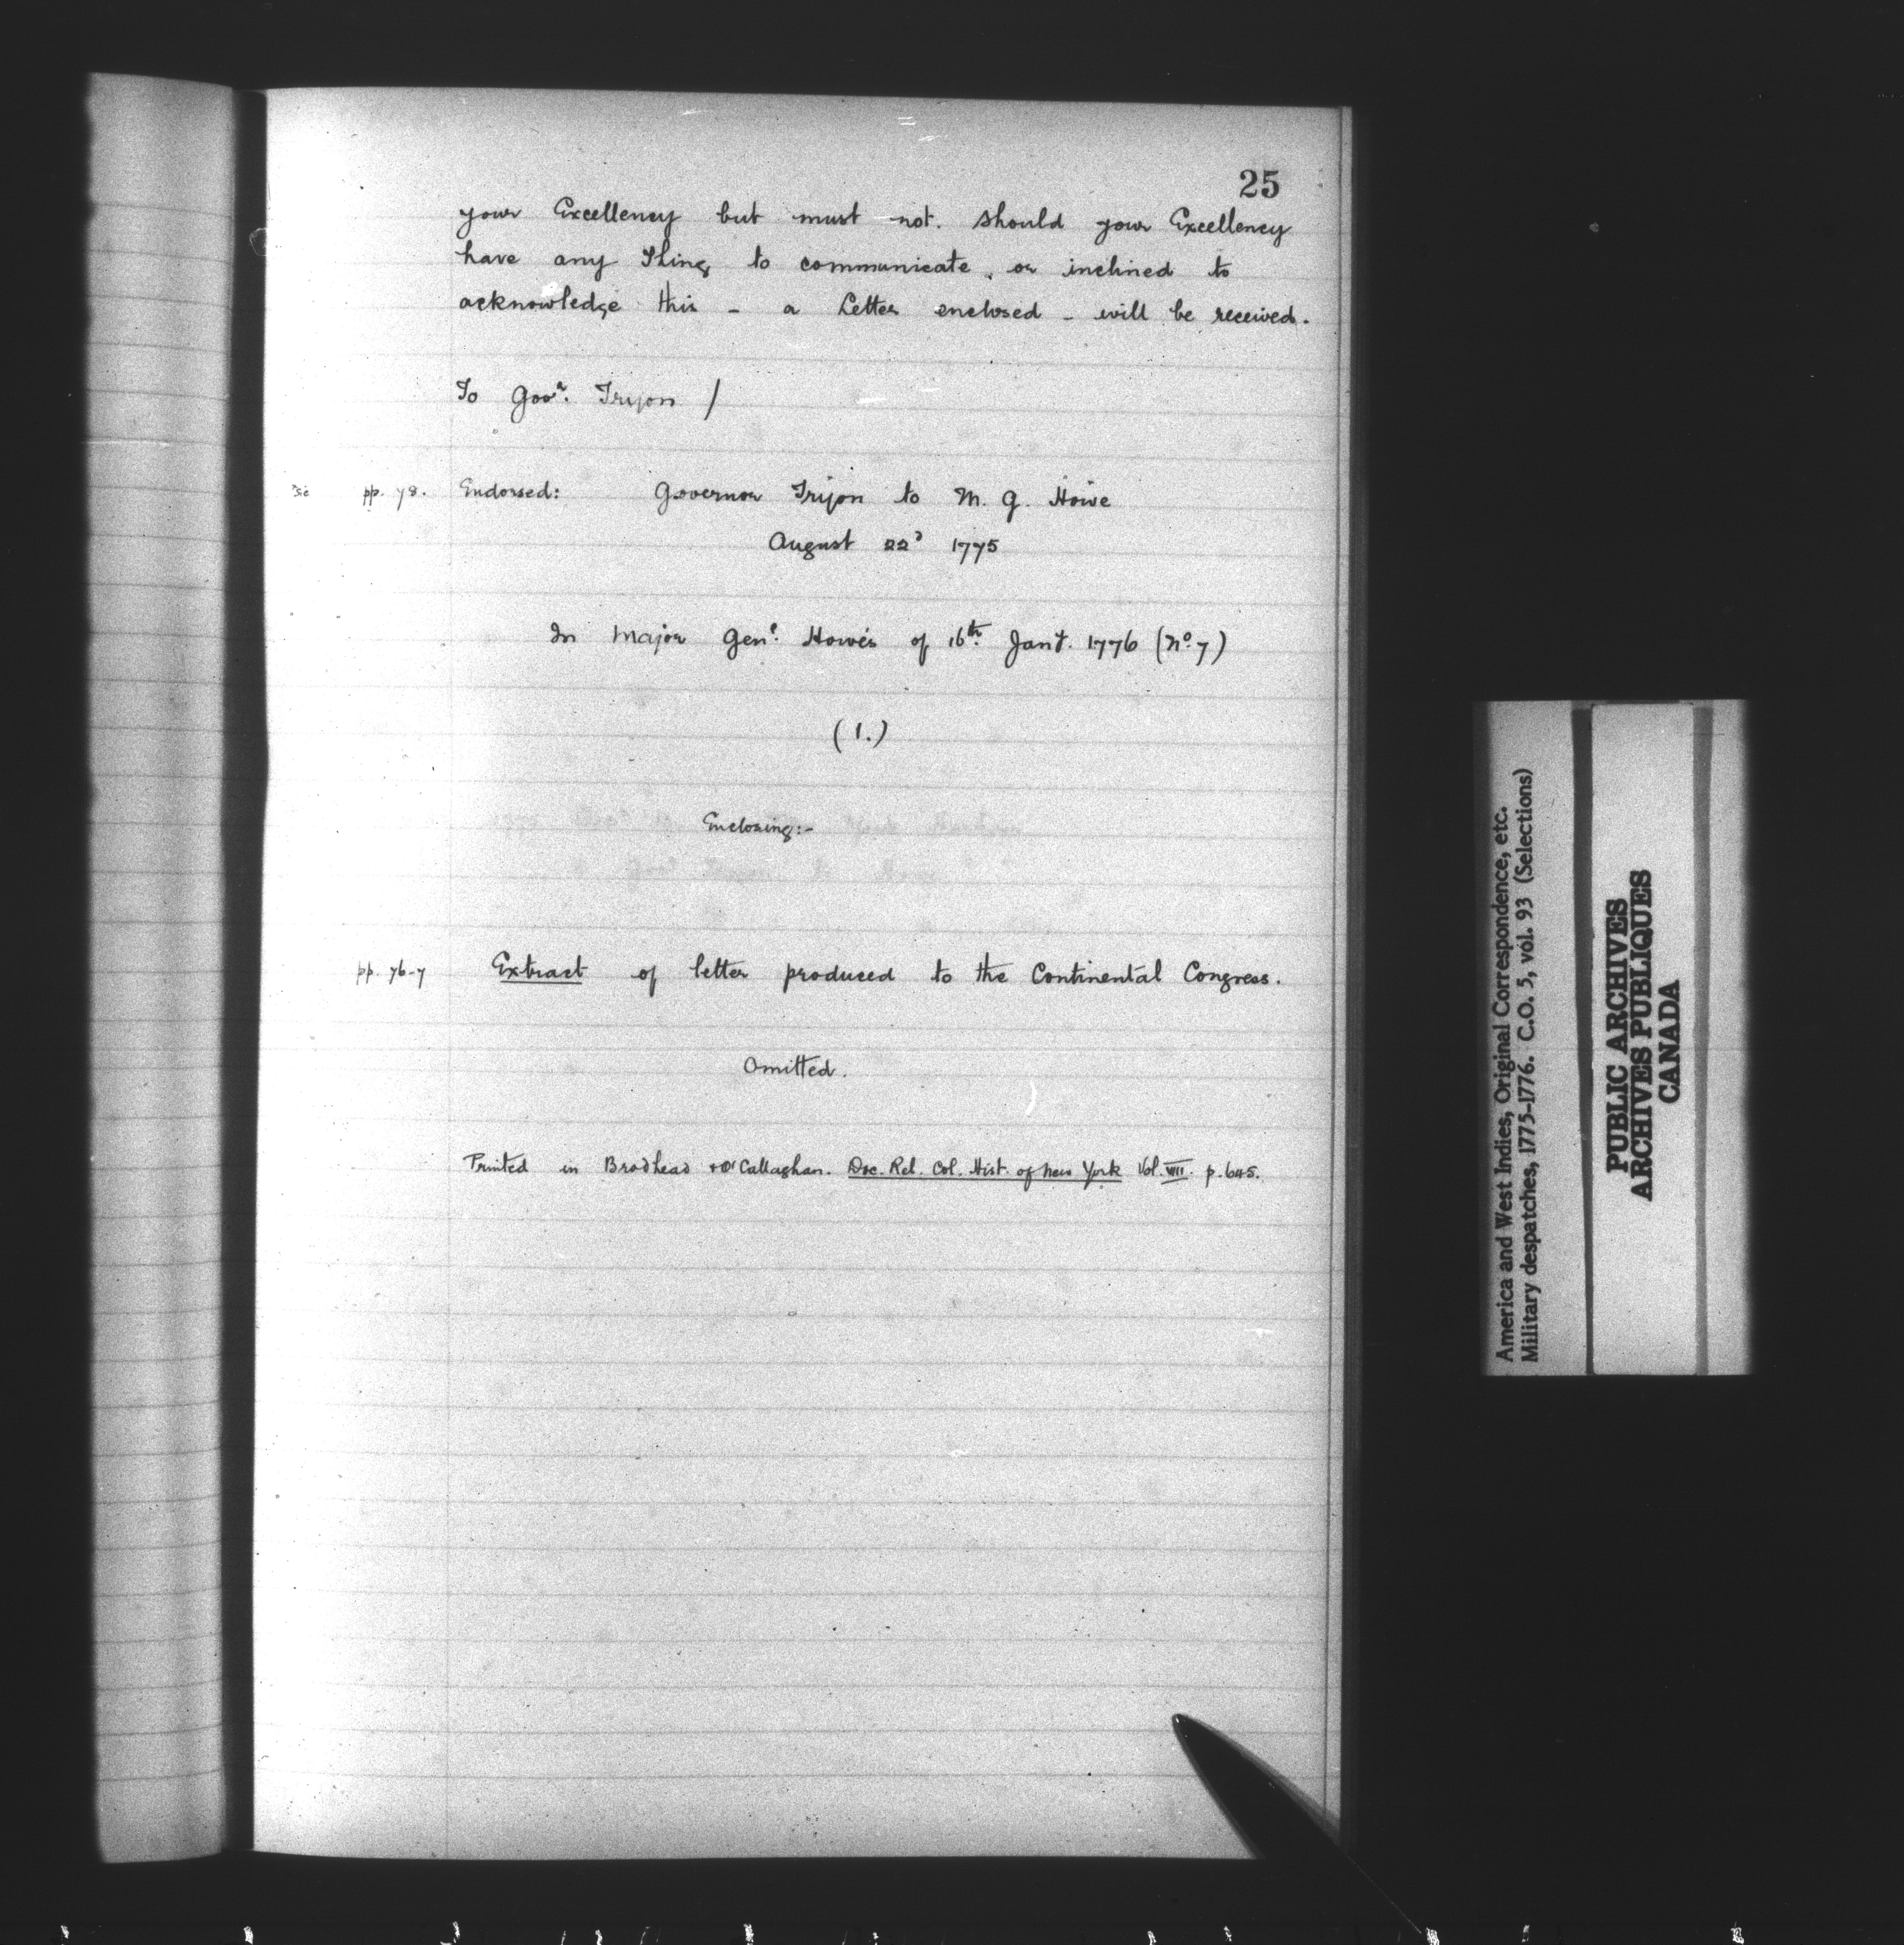 25
your Excellency but must not. Should your Excellency
have any Thing to communicate, or inclined to
acknowledge this - a Letter enclosed - will be received.
To Govr. Tryon /
sic pp. 78. Endorsed: Governor Tryon to M. G. Howe
August 22d 1775
In Major Genl. Howe's of 16th. Jany. 1776 (No. 7)
(1.)
Enclosing:-
pp. 76-7 Extract of letter produced to the Continental Congress.
Omitted.
Printed in Brodhead & O'Callaghan. Doc. Rel. Col. Hist. of New York Vol. VIII. p. 645.
America and West Indies, Original Correspondence, etc.
Military despatches, 1775-1776. C.O. 5, vol. 93 (Selections)
PUBLIC ARCHIVES
ARCHIVES PUBLIQUES
CANADA